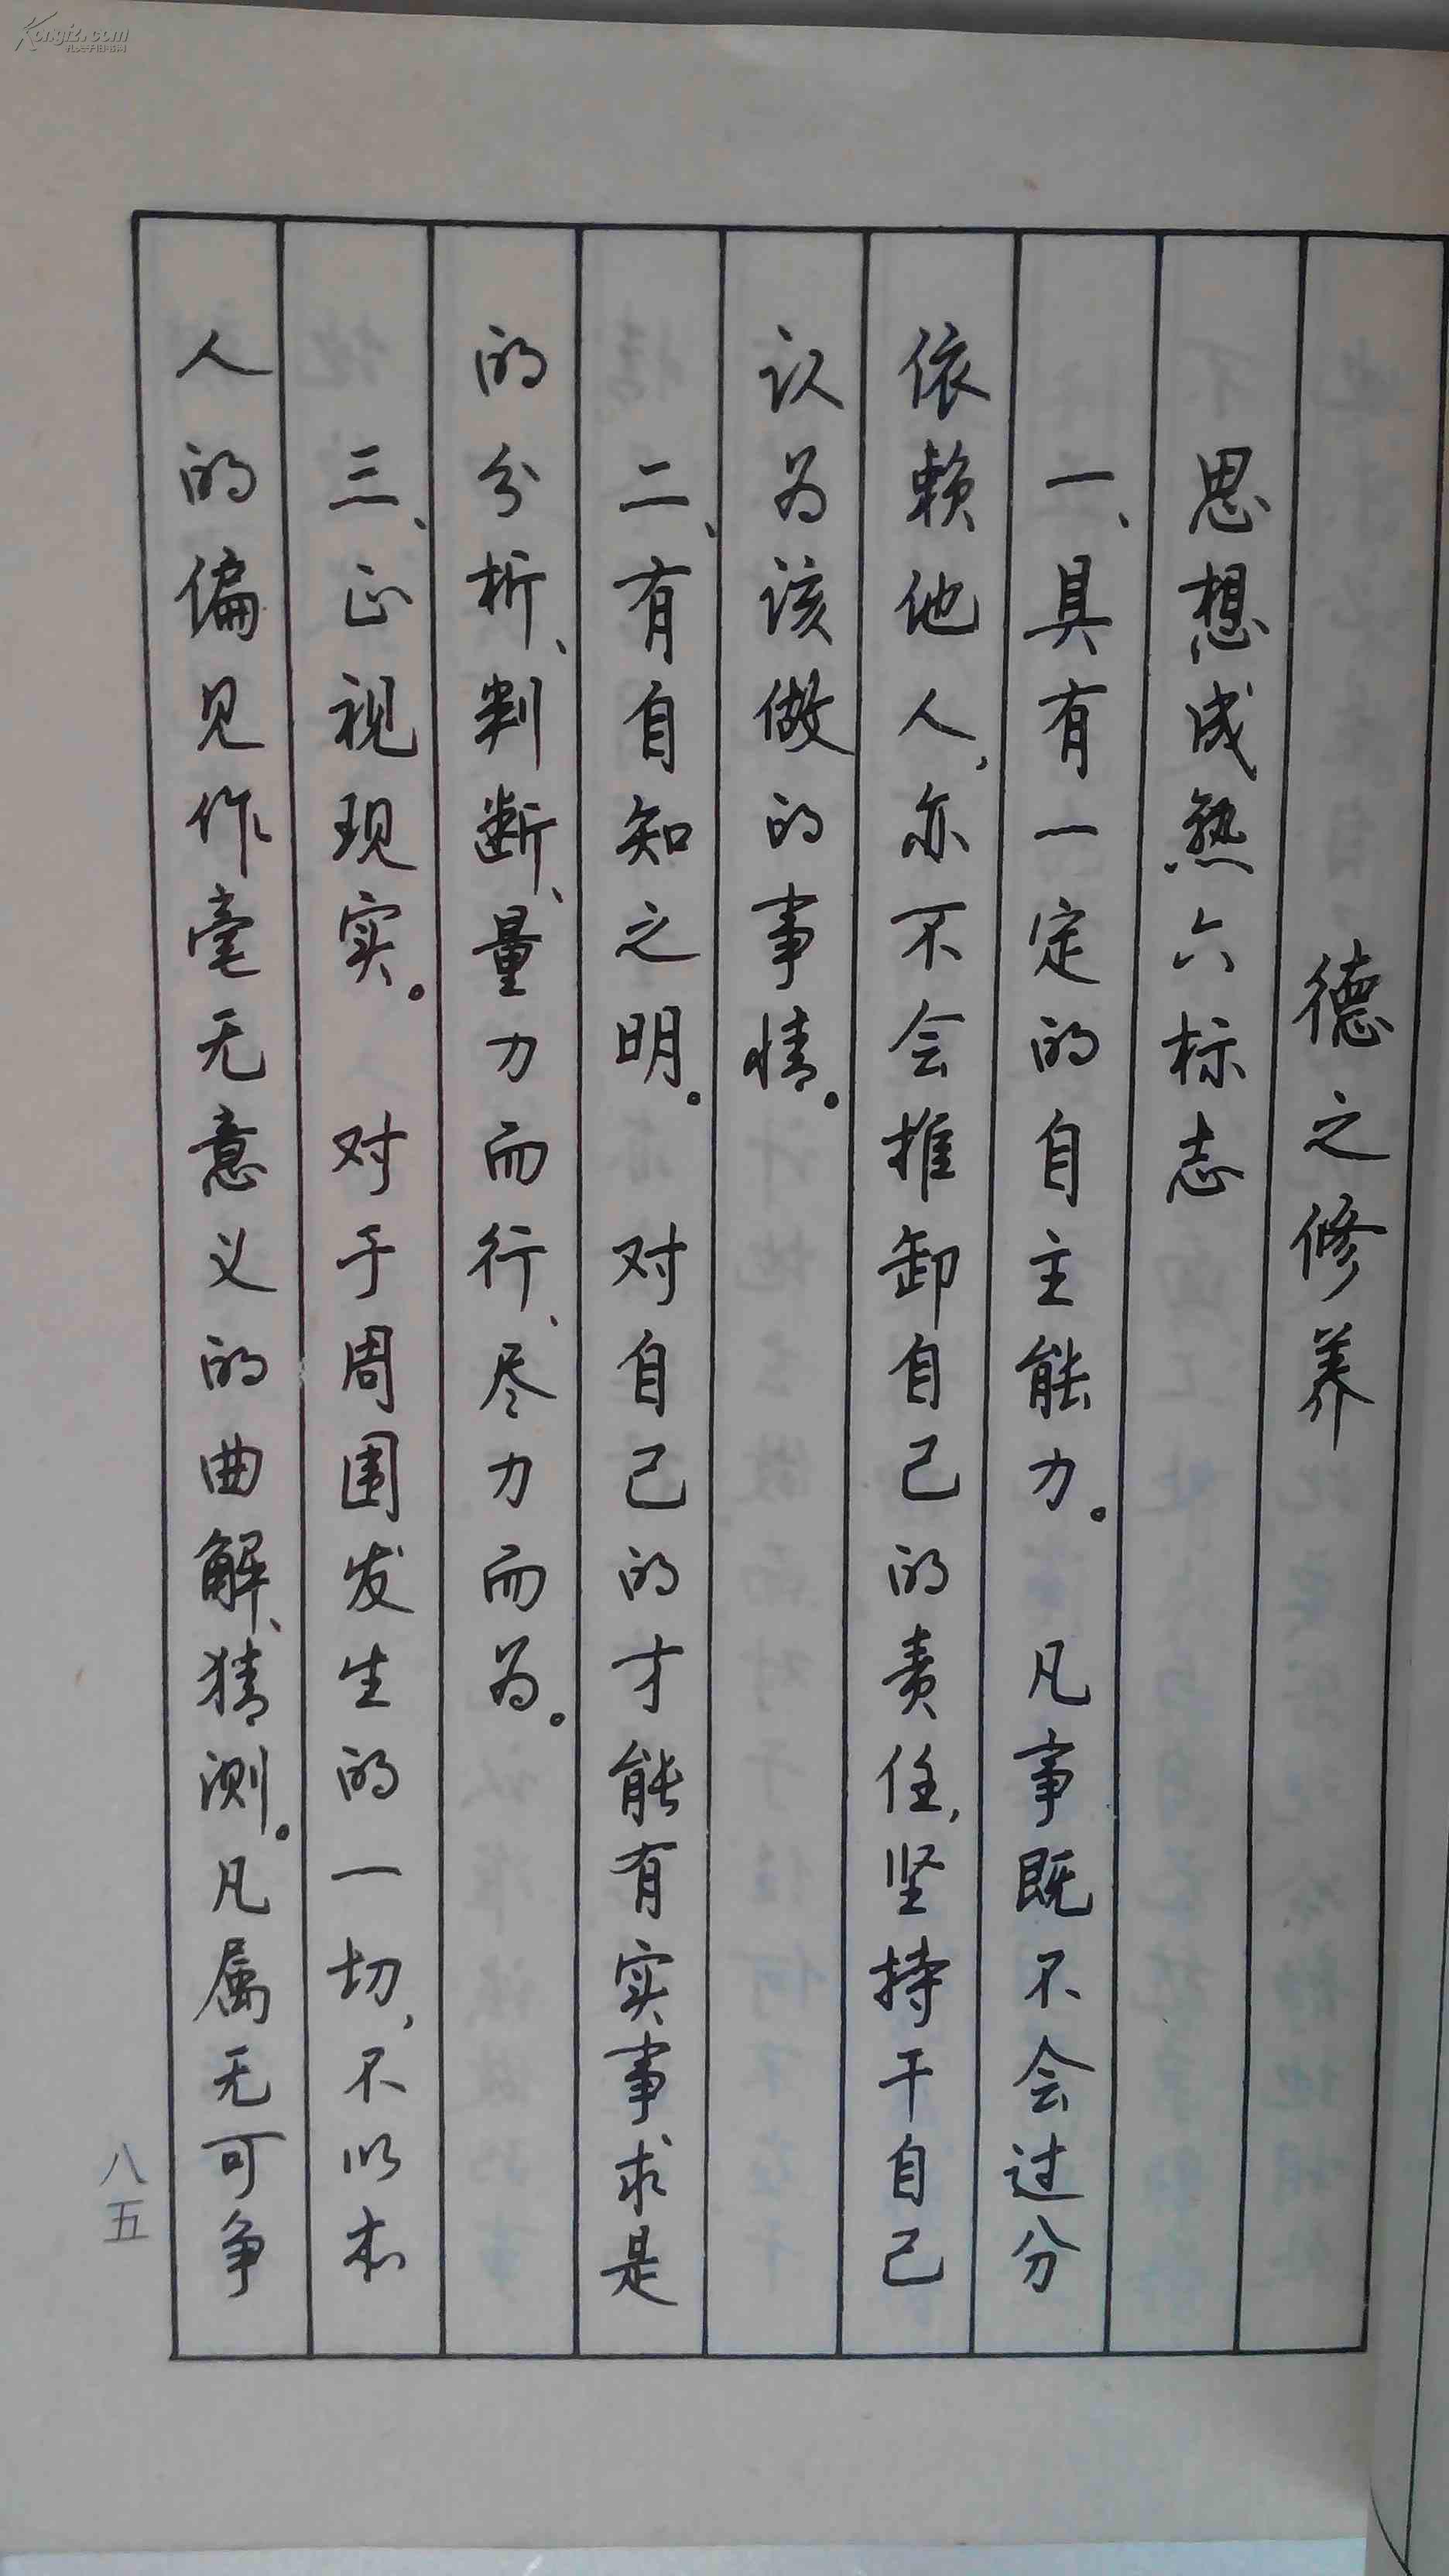 德之修养
思想成熟六标志
一、具有一定的自主能力。凡事既不会过分
依赖他人,亦不会推卸自己的责任,坚持干自己
认为该做的事情。
二、有自知之明。对自己的才能有实事求是
的分析、判断、量力而行、尽力而为。
三、正视现实。对于周围发生的一切,不以本
人的偏见作毫无意义的曲解、猜测。凡属无可争
八五
Kongfz.com
孔夫子旧书网